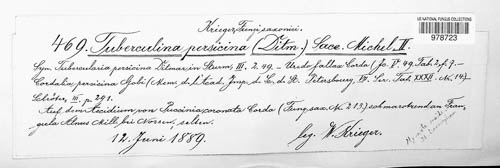 US NATIONAL FUNGUS COLLECTIONS
978723
Krieger, Fungi saxonici.
469. Tuberculina persicina (Ditm.) Sacc. Michel. II.
Syn. Tubercularia persicina Ditmar in Sturm, III. 2. 49. — Uredo fallax Corda
Cordalia persicina Gobi (Mém. d. l'Acad. Imp. d. Sc. d. St. Pétersburg, VII. Ser. Tab. XXXII. No. 14)
Schröter, III. p. 291.
Auf dem Aecidium von Puccinia coronata Corda (Fung. sax. No. 213) schmarotzend an Fran-
gula Alnus Mill. bei Nossen, selten.
12. Juni 1889.
leg. W. Krieger.